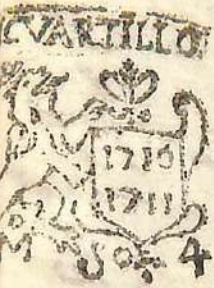 CVARTILLO
1710
1711
SO 4